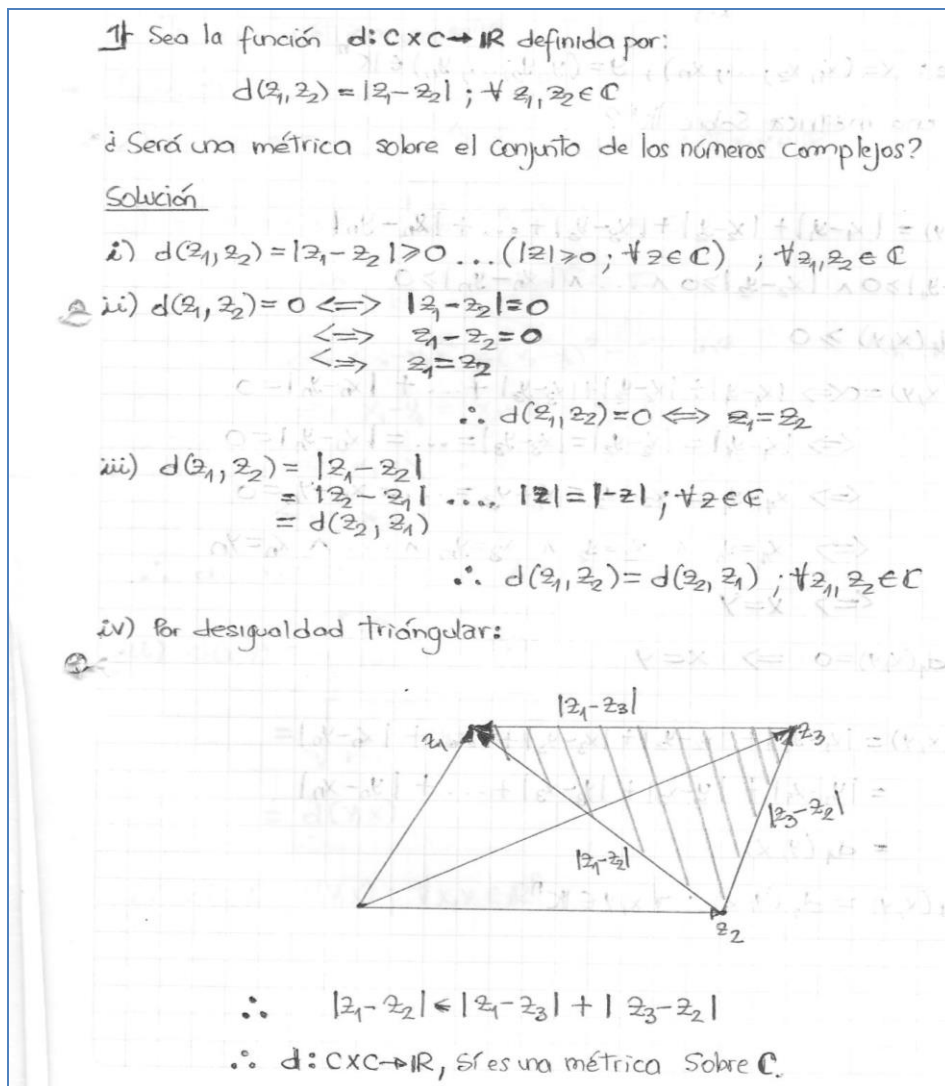 1) Sea la función d: C x C → IR definida por:
d(z₁, z₂) = |z₁ - z₂| ; ∀ z₁, z₂ ∈ ℂ
¿ Será una métrica sobre el conjunto de los números commplejos?
Solución
i) d(z₁, z₂) = |z₁ - z₂| ⩾ 0 ... (|z| ⩾ 0 ; ∀z ∈ ℂ) ; ∀z₁, z₂ ∈ ℂ
ii) d(z₁, z₂) = 0 <=> |z₁ - z₂| = 0
<=> z₁ - z₂ = 0
<=> z₁ = z₂
∴ d(z₁, z₂) = 0 <=> z₁ = z₂
iii) d(z₁, z₂) = |z₁ - z₂|
= |z₂ - z₁| .... |z| = |-z| ; ∀z ∈ ℂ
= d(z₂, z₁)
∴ d(z₁, z₂) = d(z₂, z₁) ; ∀z₁, z₂ ∈ ℂ
iv) Por desigualdad triángular:
|z₁ - z₃|
z₁
z₃
|z₃ - z₂|
|z₁ - z₂|
z₂
∴ |z₁ - z₂| ⩽ |z₁ - z₃| + | z₃ - z₂|
∴ d: C X C → IR, sí es una métrica Sobre ℂ.